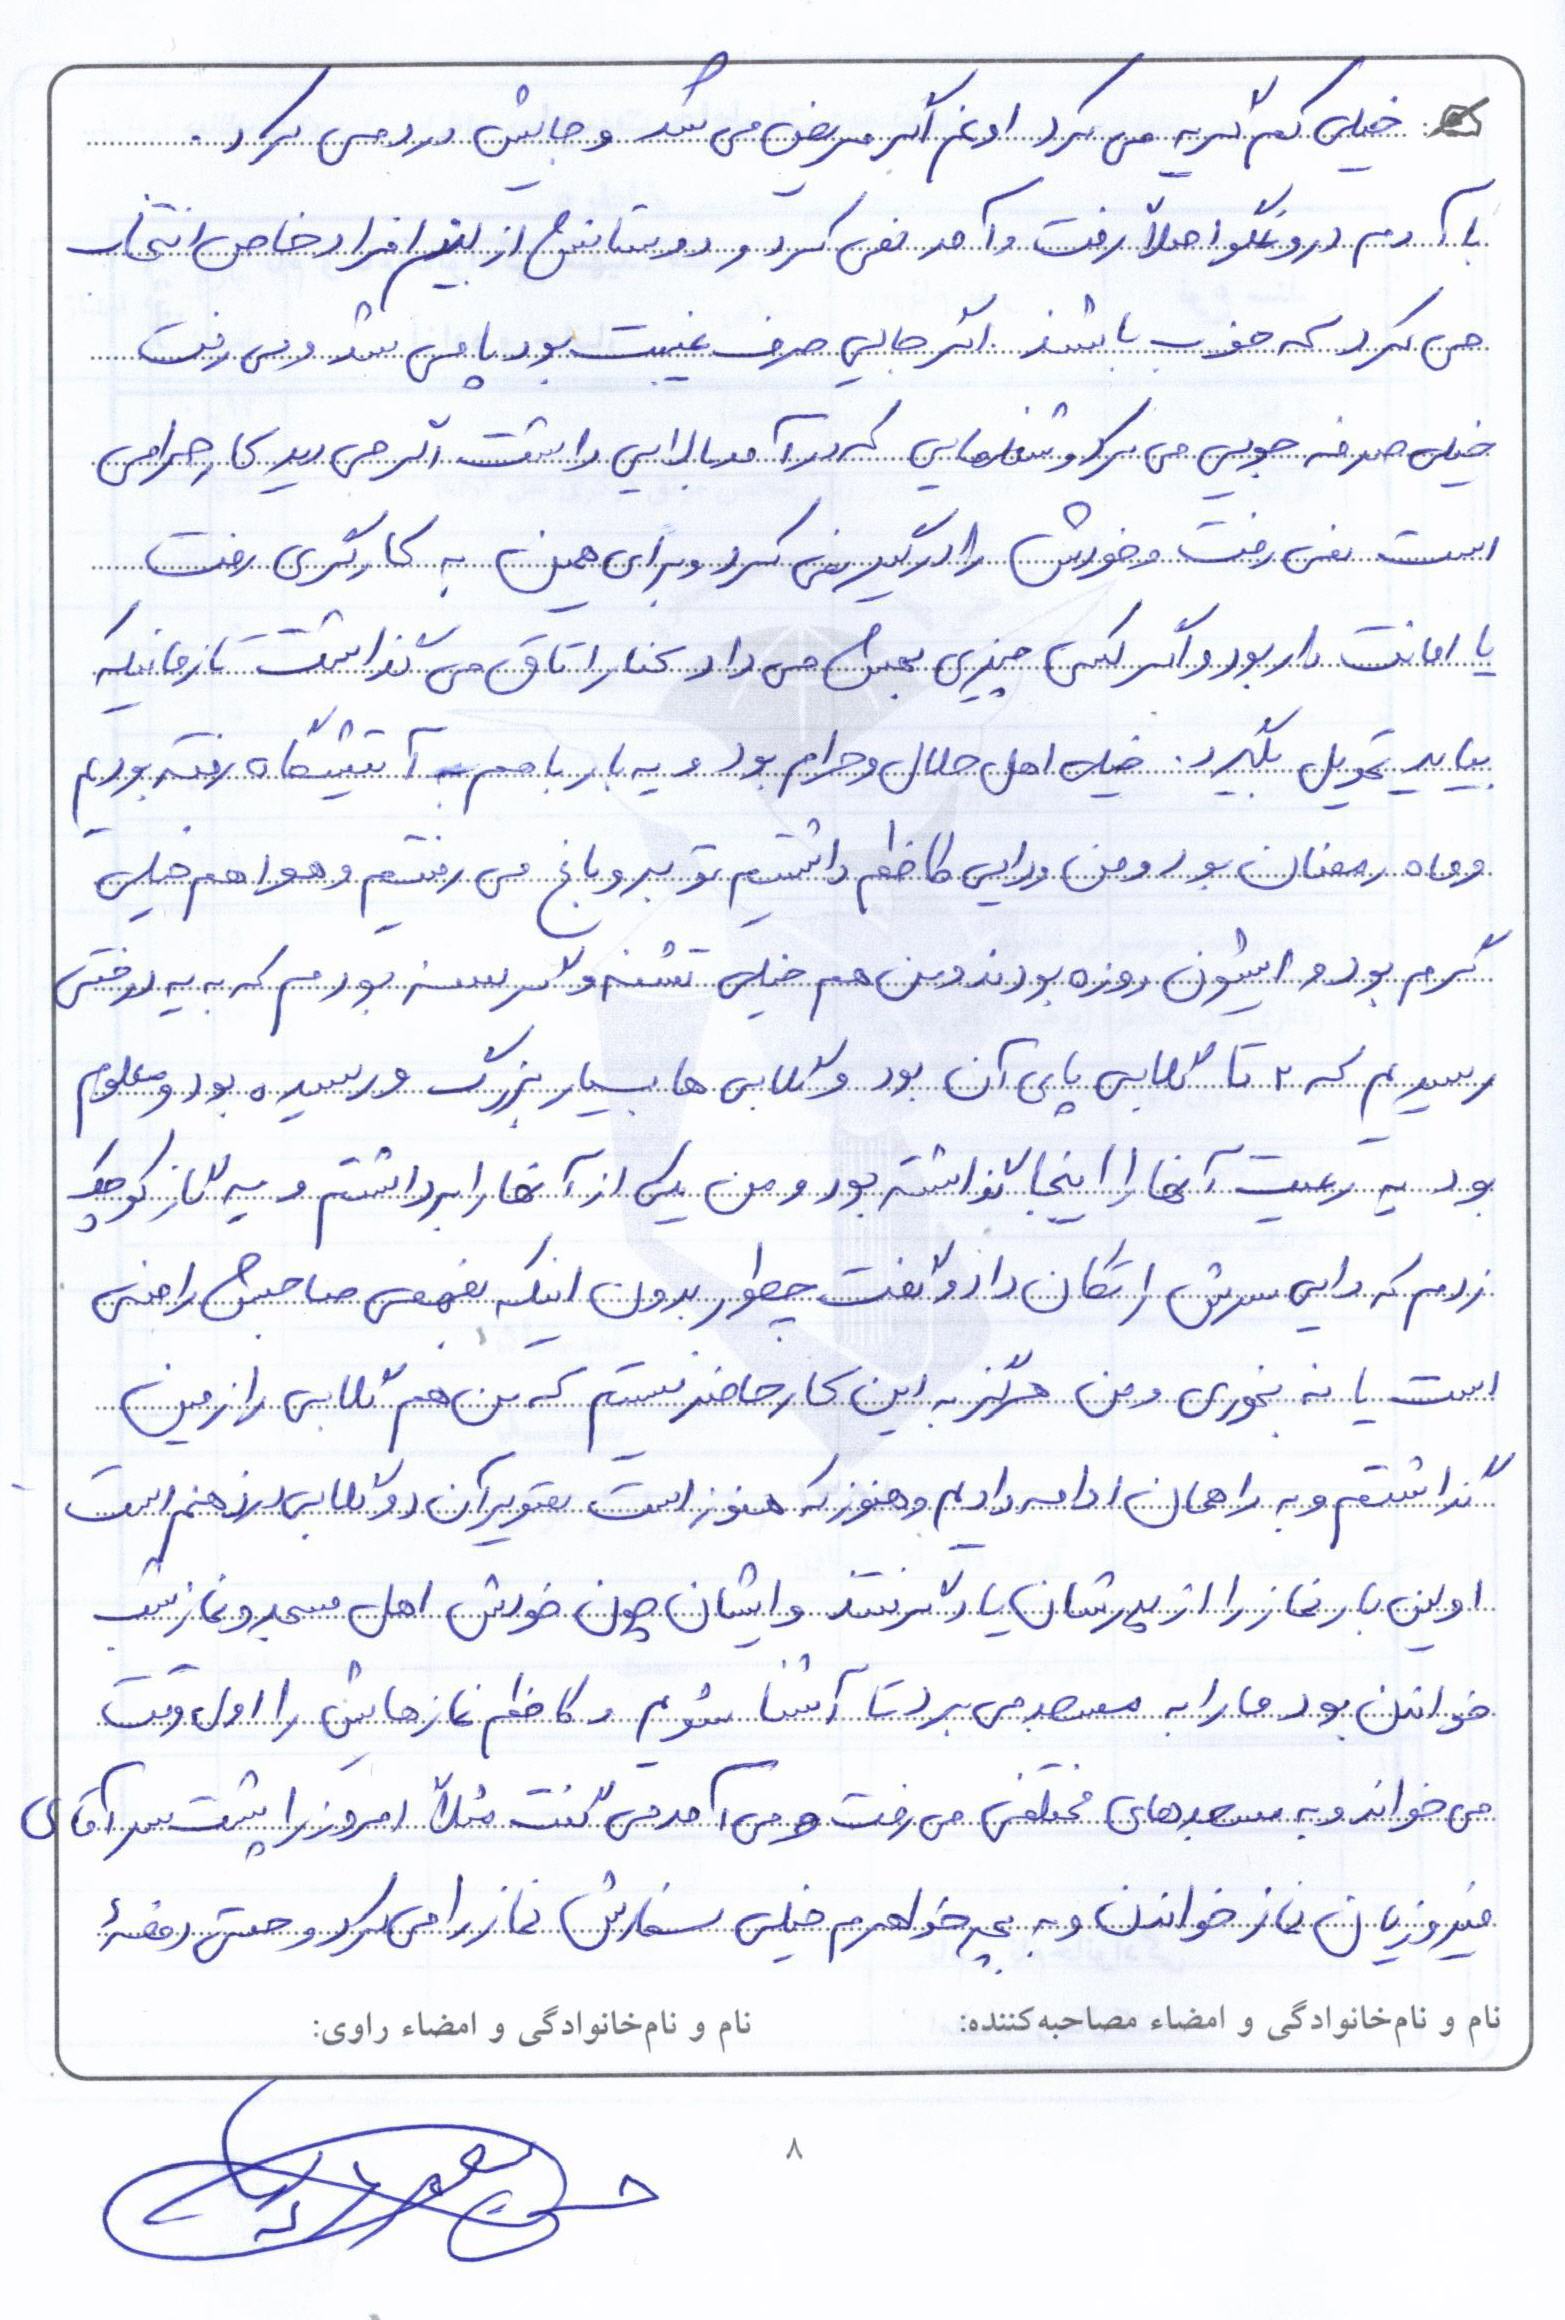 خیلی کم گریه می کرد اونم اگر مریض می شد و جاییش درد می کرد.
با آدم دروغگو اصلاً رفت و آمد نمی کرد و دوستانش از بین افراد خاص انتخاب
می کرد که خوب باشند اگر جایی حرف غیبت بود پا می شد و می رفت
خیلی صرفه جویی می کرد و شغلهایی که درآمد بالایی داشت اگر می دید کار حرامی
است نمی رفت و خودش را درگیر نمی کرد و برای همین به کارگری رفت
یا امانت دار بود و اگر کسی چیزی بهش می داد کنار اتاق می گذاشت تا زمانیکه
بیاید تحویل بگیرد. خیلی اهل حلال و حرام بود و یه بار با هم به آتشگاه رفته بودیم
و ماه رمضان بود و من و دایی کاظم داشتیم تو بر و باغ می رفتیم و هوا هم خیلی
گرم بود و ایشون روزه بودند و من هم خیلی تشنه و گرسنه بودم که به یه درختی
رسیدیم که ۲ تا گلابی پای آن بود و گلابی ها بسیار بزرگ و رسیده بود و معلوم
بود یه رعیت آنها را اینجا گذاشته بود و من یکی از آنها را برداشتم و یه گاز کوچک
زدم که دایی سرش را تکان داد و گفت چطور بدون اینکه بفهمی صاحبش راضی
است یا نه بخوری و من هرگز به این کار حاضر نیستم که من هم گلابی را زمین
گذاشتم و به راهمان ادامه دادیم و هنوز که هنوز است تصویر آن دو گلابی در ذهنم است
اولین بار نماز را از پدرشان یاد گرفتند و ایشان چون خودش اهل مسجد و نماز شب
خواندن بود ما را به مسجد می برد تا آشنا شویم و کاظم نمازهایش را اول وقت
می خواند و به مسجدهای مختلفی می رفت و می آمد می گفت مثلاً امروز را پشت سر آقای
فیروزیان نماز خواندن و به بچه خواهرم خیلی سفارش نماز را می کرد و حتی دفعهٔ
نام و نام‌خانوادگی و امضاء مصاحبه‌کننده:
نام و نام‌خانوادگی و امضاء راوی:
۸